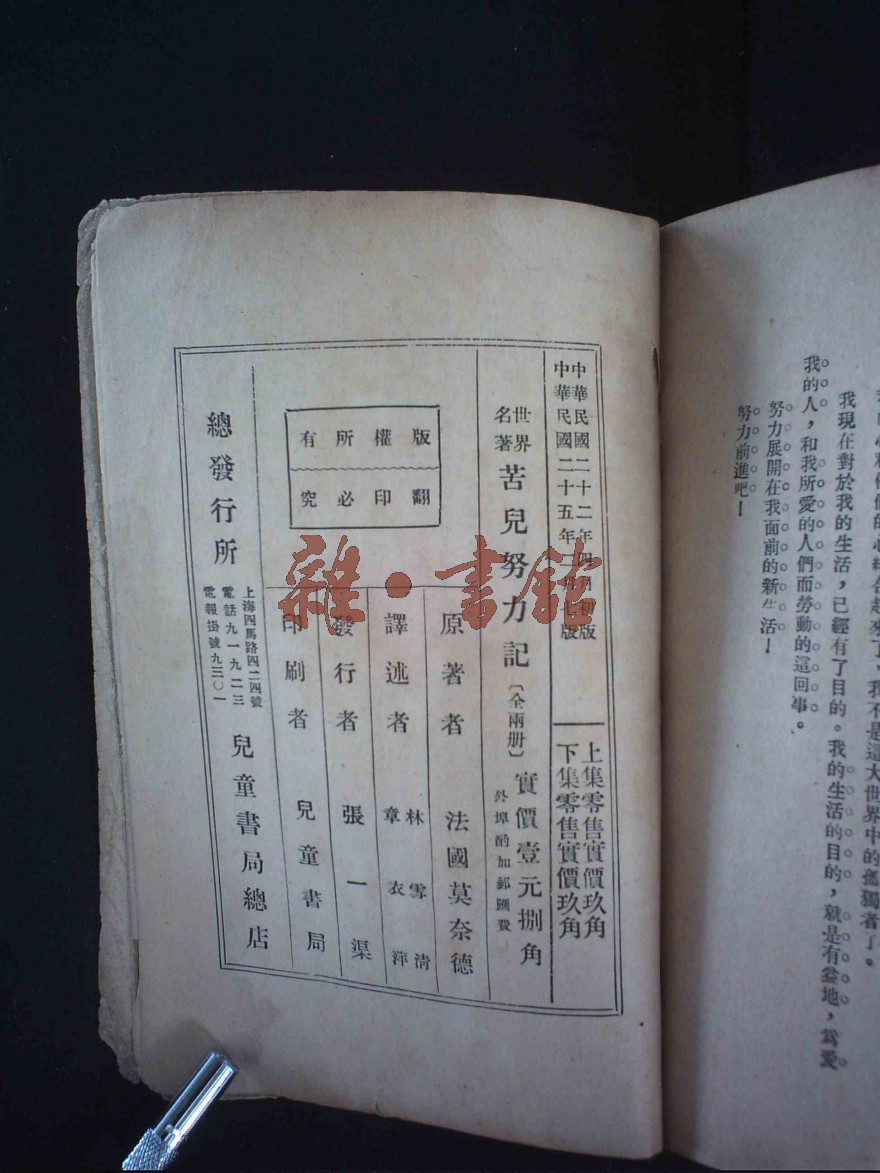 我現在對於我的生活，已經有了目的。我的生活的目的，就是有益地，爲愛
我的人，和我所愛的人們而勞動的這回事。
努力展開在我面前的新生活！
努力前進吧！
中華民國二十二年四月初版
中華民國二十五年二月七版
上集零售實價玖角
下集零售實價玖角
世界名著 苦兒努力記〔全兩册〕 實價壹元捌角
外埠酌加郵匯費
版權所有
翻印必究
原著者 法國莫奈德
譯述者 林雪清 章衣萍
發行者 張一渠
印刷者 兒童書局
總發行所 上海四馬路四二四號 電話九一九二三 電報掛號九三〇一 兒童書局總店
雜·書館